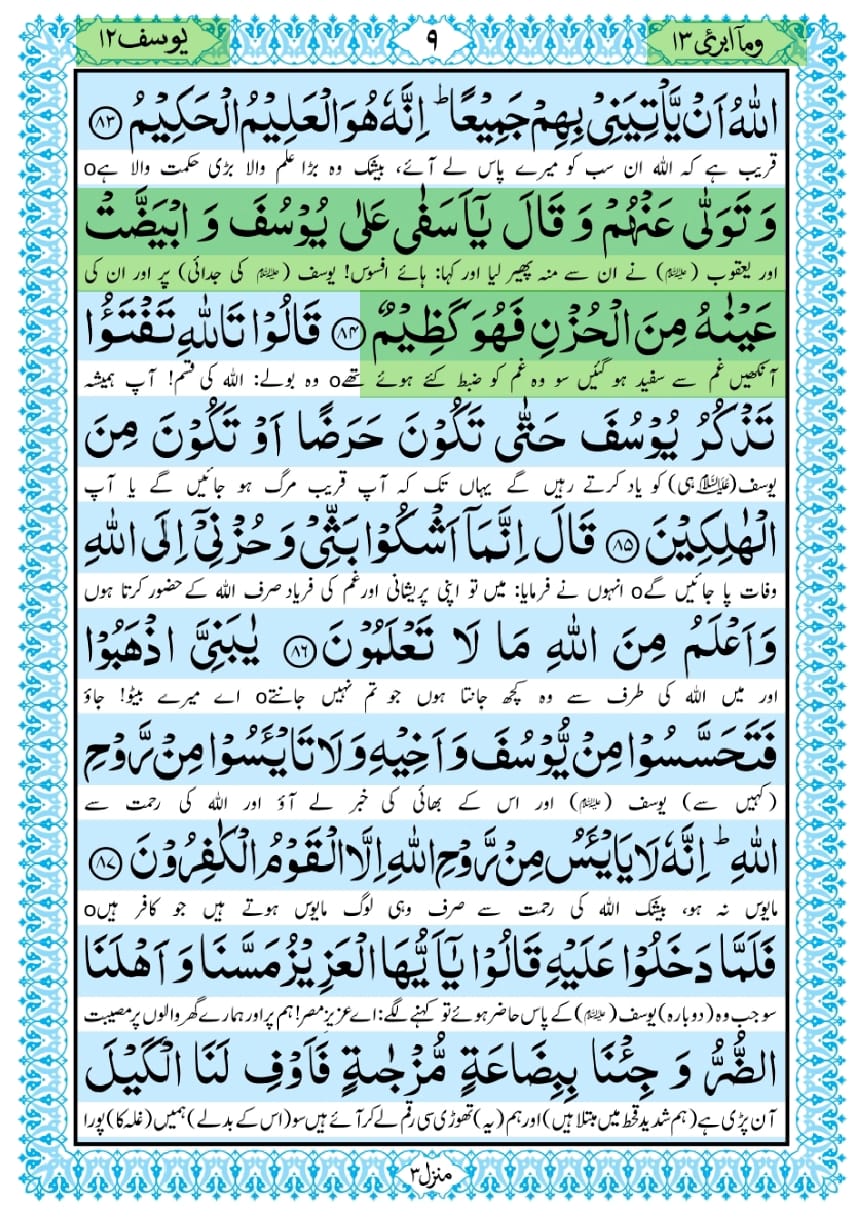 وما آبرئ ١٣
٩
یوسف ١٢
اللّٰهُ اَنْ یَّاْتِیَنِیْ بِهِمْ جَمِیْعًا ؕ اِنَّهٗ هُوَ الْعَلِیْمُ الْحَكِیْمُ ﴿۸۳﴾
قریب ہے کہ اللہ ان سب کو میرے پاس لے آئے، بیشک وہ بڑا علم والا بڑی حکمت والا ہےo
وَ تَوَلّٰی عَنْهُمْ وَ قَالَ یٰۤاَسَفٰی عَلٰی یُوْسُفَ وَ ابْیَضَّتْ
اور یعقوب (علیہ السلام) نے ان سے منہ پھیر لیا اور کہا: ہائے افسوس! یوسف (علیہ السلام کی جدائی) پر اور ان کی
عَیْنٰهُ مِنَ الْحُزْنِ فَهُوَ كَظِیْمٌ ﴿۸۴﴾ قَالُوْا تَاللّٰهِ تَفْتَؤُا
آنکھیں غم سے سفید ہو گئیں سو وہ غم کو ضبط کئے ہوئے تھےo وہ بولے: اللہ کی قسم! آپ ہمیشہ
تَذْكُرُ یُوْسُفَ حَتّٰی تَكُوْنَ حَرَضًا اَوْ تَكُوْنَ مِنَ
یوسف (علیہ السلام ہی) کو یاد کرتے رہیں گے یہاں تک کہ آپ قریب مرگ ہو جائیں گے یا آپ
الْهٰلِكِیْنَ ﴿۸۵﴾ قَالَ اِنَّمَاۤ اَشْكُوْا بَثِّیْ وَ حُزْنِیْۤ اِلَی اللّٰهِ
وفات پا جائیں گےo انہوں نے فرمایا: میں تو اپنی پریشانی اور غم کی فریاد صرف اللہ کے حضور کرتا ہوں
وَ اَعْلَمُ مِنَ اللّٰهِ مَا لَا تَعْلَمُوْنَ ﴿۸۶﴾ یٰبَنِیَّ اذْهَبُوْا
اور میں اللہ کی طرف سے وہ کچھ جانتا ہوں جو تم نہیں جانتےo اے میرے بیٹو! جاؤ
فَتَحَسَّسُوْا مِنْ یُّوْسُفَ وَ اَخِیْهِ وَ لَا تَایْـَٔسُوْا مِنْ رَّوْحِ
(کہیں سے) یوسف (علیہ السلام) اور اس کے بھائی کی خبر لے آؤ اور اللہ کی رحمت سے
اللّٰهِ ؕ اِنَّهٗ لَا یَایْـَٔسُ مِنْ رَّوْحِ اللّٰهِ اِلَّا الْقَوْمُ الْكٰفِرُوْنَ ﴿۸۷﴾
مایوس نہ ہو، بیشک اللہ کی رحمت سے صرف وہی لوگ مایوس ہوتے ہیں جو کافر ہیںo
فَلَمَّا دَخَلُوْا عَلَیْهِ قَالُوْا یٰۤاَیُّهَا الْعَزِیْزُ مَسَّنَا وَ اَهْلَنَا
سو جب وہ (دوبارہ) یوسف (علیہ السلام) کے پاس حاضر ہوئے تو کہنے لگے: اے عزیزِ مصر! ہم پر اور ہمارے گھر والوں پر مصیبت
الضُّرُّ وَ جِئْنَا بِبِضَاعَةٍ مُّزْجٰىةٍ فَاَوْفِ لَنَا الْكَیْلَ
آن پڑی ہے (ہم شدید قحط میں مبتلا ہیں) اور ہم (یہ) تھوڑی سی رقم لے کر آئے ہیں سو (اس کے بدلے) ہمیں (غلہ کا) پورا
منزل ٣